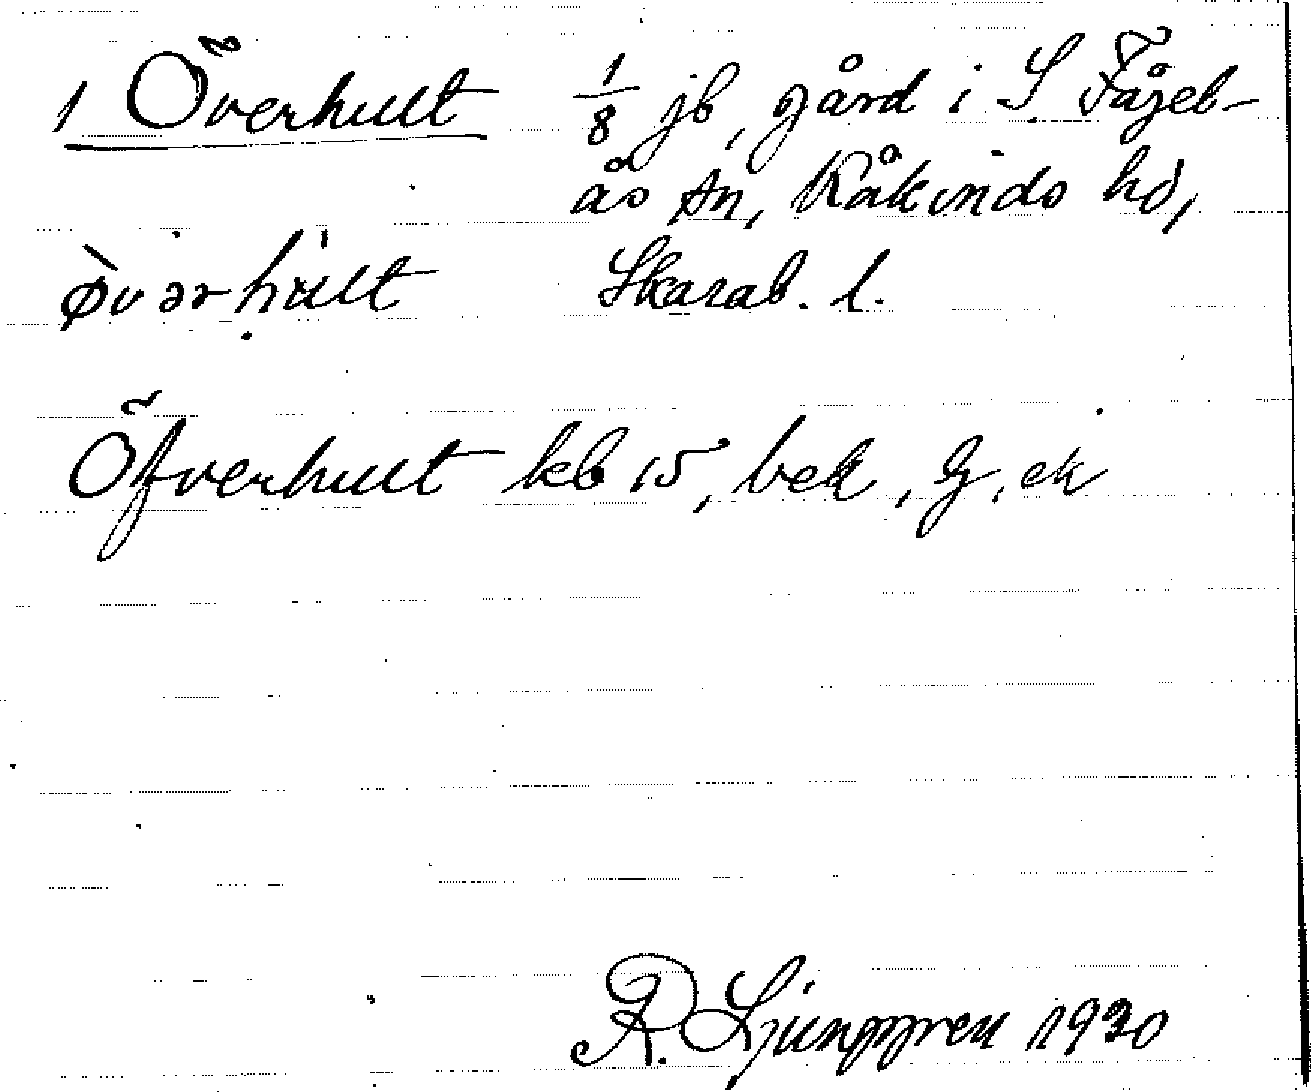 1 Överhult 1/8 jb, gård i S. Fågel-
ås sn, Kåkinds hd,
øvərhult Skarab. l.
Öfverhult kb 15, bek, G, ek
R. Ljunggren 1930